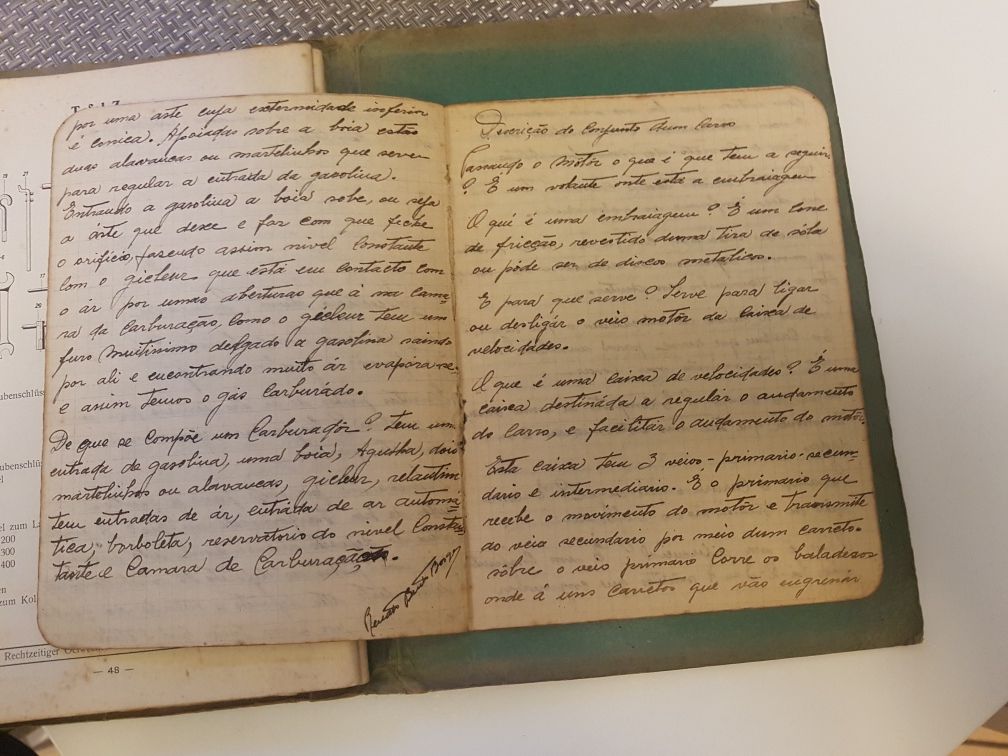 T. S I Z
28
27
17
29
16
ubenschlüss
ubenschlüs
el zum La
200
300
400
en
zum Kol
Rechtzeitiger
— 48 —
por uma áste cuja extermidade inferior
é conica. Apoiadas sobre a boia estão
duas alavancas ou martelinhos que servem
para regular a entrada da gasolina.
Entrando a gasolina a boia sobe, ou seja
a áste que desce e faz com que feche
o orificio, fasendo assim nivel constante
com o gicleur que está em contacto com
o ár por umas aberturas que á na cama-
ra da carburação, como o gicleur tem um
furo muitissimo delgado a gasolina saindo
por ali e encontrando muito ár evapora-se
e assim temos o gás carburádo.
De que se compõe um Carburadôr? Tem um
entrada de gasolina, uma boia, Agulha, dois
martelinhos ou alavancas, gicleur, relantim
tem entradas de ár, entráda de ar automá-
tica, borboleta, reservatorio do nivel Constan-
tante e Camara de Carburação.
Descrição do Conjunto dum Carro
Passando o motôr o que é que tem a seguir
? É um volante onte está a embraiagem
O qui é uma embraiagem? É um cone
de fricção, revestido duma tira de sóla
ou póde ser de discos metalicos.
E para que serve? Serve para ligar
ou desligár o veio motôr da caixa de
velocidades.
O que é uma caixa de velocidades? É uma
caixa destináda a regular o andamento
do carro, e facilitar o andamento do motôr.
Esta caixa tem 3 veios - primario - secun-
dario e intermediario. É o primario que
recebe o movimento do motôr e transmite
ao veio secundario por meio dum carreto.
sôbre o veio primario corre os baladeros
onde á uns carretos que vão engrenár